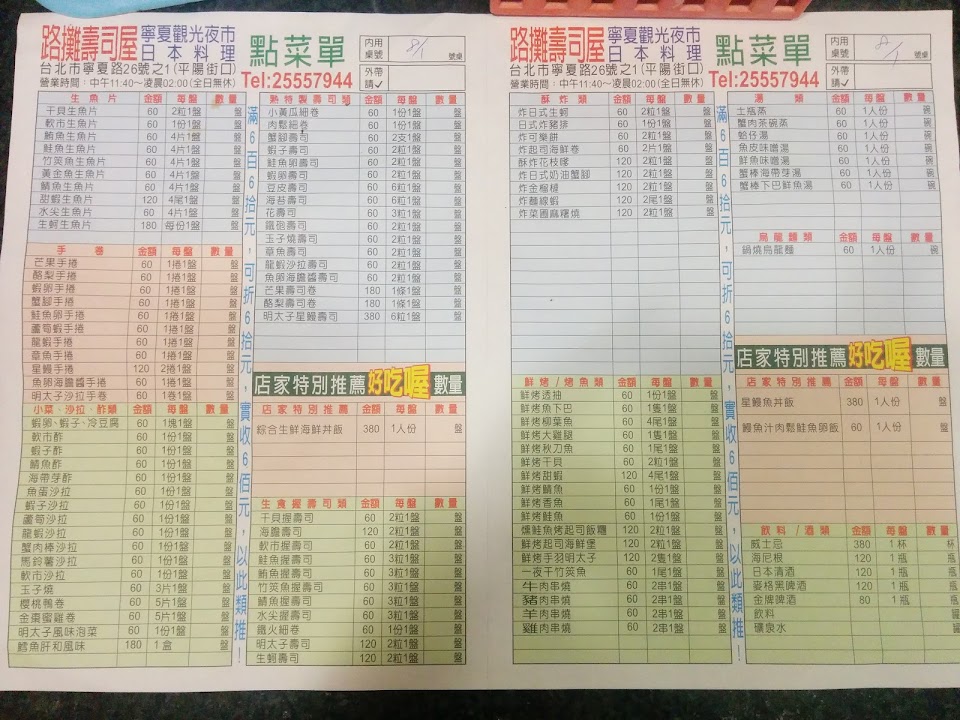 路攤壽司屋
寧夏觀光夜市
日本料理
點菜單
台北市寧夏路26號之1(平陽街口)
Tel:25557944
營業時間：中午11:40~凌晨02:00(全日無休)
內用
桌號
8/1
號桌
外帶
請✓
生魚片 金額 每盤 數量
干貝生魚片 60 2粒1盤 盤
軟市生魚片 60 1份1盤 盤
鮪魚生魚片 60 4片1盤 盤
鮭魚生魚片 60 4片1盤 盤
竹筴魚生魚片 60 4片1盤 盤
黃金魚生魚片 60 4片1盤 盤
鯖魚生魚片 60 4片1盤 盤
甜蝦生魚片 120 4尾1盤 盤
水尖生魚片 60 4片1盤 盤
生蚵生魚片 180 每份1盤 盤
手卷 金額 每盤 數量
芒果手捲 60 1捲1盤 盤
酪梨手捲 60 1捲1盤 盤
蝦卵手捲 60 1捲1盤 盤
蟹腳手捲 60 1捲1盤 盤
鮭魚卵手捲 60 1捲1盤 盤
蘆筍蝦手捲 60 1捲1盤 盤
龍蝦手捲 60 1捲1盤 盤
章魚手捲 60 1捲1盤 盤
星鰻手捲 120 2捲1盤 盤
魚卵海膽醬手捲 60 1捲1盤 盤
明太子沙拉手卷 60 1卷1盤 盤
小菜、沙拉、酢類 金額 每盤 數量
蝦卵、蝦子、冷豆腐 60 1塊1盤 盤
軟市酢 60 1份1盤 盤
蝦子酢 60 1份1盤 盤
鯖魚酢 60 1份1盤 盤
海帶芽酢 60 1份1盤 盤
魚蛋沙拉 60 1份1盤 盤
蝦子沙拉 60 1份1盤 盤
蘆筍沙拉 60 1份1盤 盤
龍蝦沙拉 60 1份1盤 盤
蟹肉棒沙拉 60 1份1盤 盤
馬鈴薯沙拉 60 1份1盤 盤
軟市沙拉 60 1份1盤 盤
玉子燒 60 3片1盤 盤
櫻桃鴨卷 60 5片1盤 盤
金棗蜜雞卷 60 5片1盤 盤
明太子風味泡菜 60 1份1盤 盤
鱈魚肝和風味 180 1盒 盤
滿6百6拾元，可折6拾元，實收6佰元，以此類推！
熟特製壽司類 金額 每盤 數量
小黃瓜細卷 60 1份1盤 盤
肉鬆細卷 60 1份1盤 盤
蟹腳壽司 60 2支1盤 盤
蝦子壽司 60 2粒1盤 盤
鮭魚卵壽司 60 2粒1盤 盤
蝦卵壽司 60 2粒1盤 盤
豆皮壽司 60 6粒1盤 盤
海苔壽司 60 6粒1盤 盤
花壽司 60 3粒1盤 盤
鐵砲壽司 60 2粒1盤 盤
玉子燒壽司 60 2粒1盤 盤
章魚壽司 60 2粒1盤 盤
龍蝦沙拉壽司 60 2粒1盤 盤
魚卵海膽醬壽司 60 2粒1盤 盤
芒果壽司卷 180 1條1盤 盤
酪梨壽司卷 180 1條1盤 盤
明太子星鰻壽司 380 6粒1盤 盤
店家特別推薦 好吃喔 數量
店家特別推薦 金額 每盤 數量
綜合生鮮海鮮丼飯 380 1人份 盤
生食握壽司類 金額 每盤 數量
干貝握壽司 60 2粒1盤 盤
海膽壽司 120 2粒1盤 盤
軟市握壽司 60 2粒1盤 盤
鮭魚握壽司 60 3粒1盤 盤
鮪魚握壽司 60 3粒1盤 盤
竹筴魚握壽司 60 3粒1盤 盤
鯖魚握壽司 60 3粒1盤 盤
水尖握壽司 60 3粒1盤 盤
鐵火細卷 60 1份1盤 盤
明太子壽司 120 2粒1盤 盤
生蚵壽司 120 2粒1盤 盤
路攤壽司屋
寧夏觀光夜市
日本料理
點菜單
台北市寧夏路26號之1(平陽街口)
Tel:25557944
營業時間：中午11:40~凌晨02:00(全日無休)
內用
桌號
號桌
外帶
請✓
酥炸類 金額 每盤 數量
炸日式生蚵 60 2粒1盤 盤
日式炸豬排 60 1份1盤 盤
炸可樂餅 60 2粒1盤 盤
炸起司海鮮卷 60 2片1盤 盤
酥炸花枝嗲 120 2粒1盤 盤
炸日式奶油蟹腳 120 2粒1盤 盤
炸金榴槤 120 2粒1盤 盤
炸麵線蝦 120 2粒1盤 盤
炸菜圃麻糬燒 120 2粒1盤 盤
鮮烤/烤魚類 金額 每盤 數量
鮮烤透抽 60 1份1盤 盤
鮮烤魚下巴 60 1隻1盤 盤
鮮烤柳葉魚 60 4尾1盤 盤
鮮烤大雞腿 60 1隻1盤 盤
鮮烤秋刀魚 60 1尾1盤 盤
鮮烤干貝 60 2粒1盤 盤
鮮烤甜蝦 120 4尾1盤 盤
鮮烤鯖魚 60 1份1盤 盤
鮮烤香魚 60 1尾1盤 盤
鮮烤鮭魚 60 1份1盤 盤
燻鮭魚烤起司飯糰 120 2粒1盤 盤
鮮烤起司海鮮堡 120 2粒1盤 盤
鮮烤手羽明太子 120 2隻1盤 盤
一夜干竹筴魚 60 1尾1盤 盤
牛肉串燒 60 2串1盤 盤
豬肉串燒 60 2串1盤 盤
羊肉串燒 60 2串1盤 盤
雞肉串燒 60 2串1盤 盤
滿6百6拾元，可折6拾元，實收6佰元，以此類推！
湯類 金額 每盤 數量
土瓶蒸 60 1人份 碗
蟹肉茶碗蒸 60 1人份 碗
蛤仔湯 60 1人份 碗
魚皮味噌湯 60 1人份 碗
鮮魚味噌湯 60 1人份 碗
蟹棒海帶芽湯 60 1人份 碗
蟹棒下巴鮮魚湯 60 1人份 碗
烏龍麵類 金額 每盤 數量
鍋燒烏龍麵 60 1人份 碗
店家特別推薦 好吃喔 數量
店家特別推薦 金額 每盤 數量
星鰻魚丼飯 380 1人份 盤
鰻魚汁肉鬆鮭魚卵飯 60 1人份 盤
飲料/酒類 金額 每盤 數量
威士忌 380 1杯 杯
海尼根 120 1瓶 瓶
日本清酒 120 1瓶 瓶
麥格黑啤酒 120 1瓶 瓶
金牌啤酒 80 1瓶 瓶
飲料 罐
礦泉水 罐